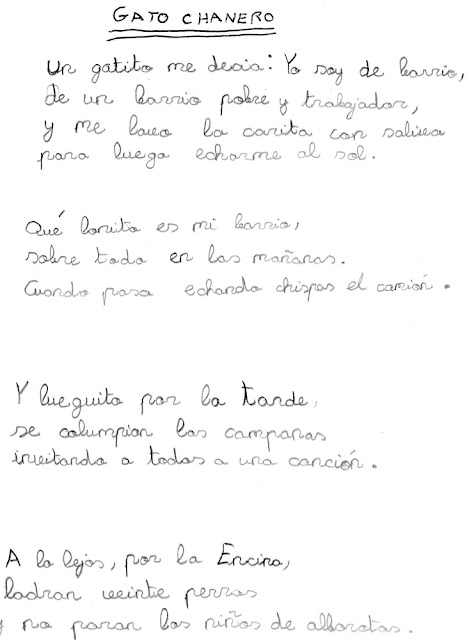 GATO CHANERO
Un gatito me decia: Yo soy de barrio,
de un barrio pobre y trabajador,
y me lavo la carita con saliva
para luego echarme al sol.
Qué bonito es mi barrio,
sobre todo en las mañanas.
Cuando pasa echando chispas el camión.
Y lueguito por la tarde,
se columpian las campanas
invitando a todos a una canción.
A lo lejos, por la Encina,
ladran veinte perros
y no paran los niños de alborotar.